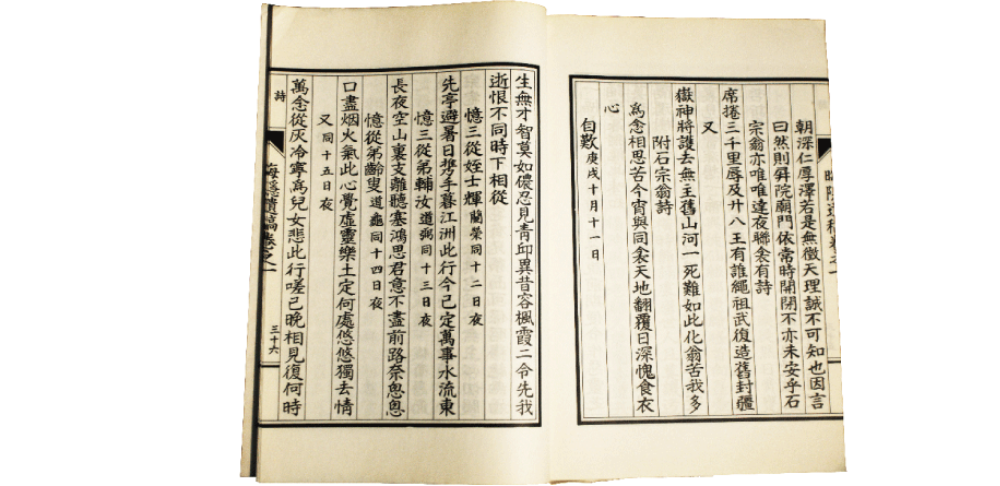 朝深仁厚澤若是無徵天理誠不可知也因言
曰然則屏院廟門依常時開閉不亦未安乎石
宗翁亦唯唯達夜聯衾有詩
席捲三千里辱及廿八王有誰繩祖武復造舊封疆
又
嶽神將護去無主舊山河一死難如此化翁苦我多
附石宗翁詩
爲念相思苦今宵與同衾天地翻覆日深愧食衣
心
自歎 庚戌十月十一日
生無才智莫如儂忍見靑邱異昔容楓霞二令先我
逝恨不同時下相從
憶三從姪士輝 蘭榮同十二日夜
先亭避暑日攜手暮江洲此行今已定萬事水流東
憶三從弟輔汝道弼 同十三日夜
長夜空山裏支離聽塞鴻思君意不盡前路奈悤悤
憶從弟齡叟道龜 同十四日夜
口盡烟火氣此心覺虛靈樂土定何處悠悠獨去情
又 同十五日夜
萬念從灰冷寧爲兒女悲此行嗟已晩相見復何時
詩
遺稿卷之一
三十六